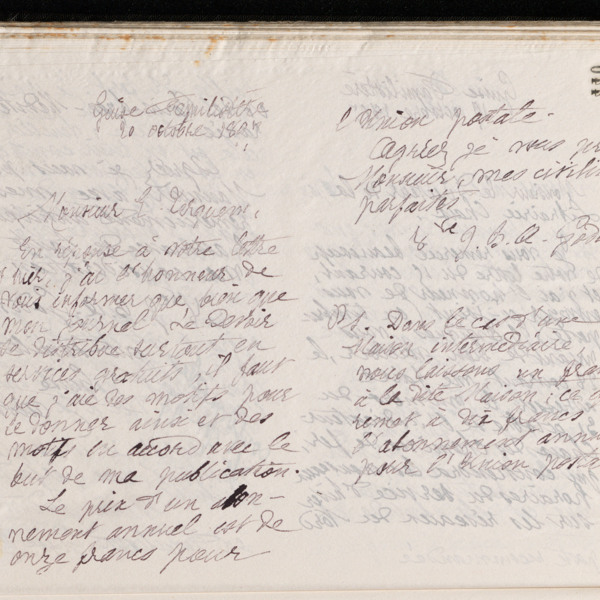 Guise Familistère
20 octobre 1897
Monsieur E. Terquem,
En réponse à votre lettre
d'hier, j'ai l'honneur de
vous informer que bien que
mon journal Le Devoir
se distribue surtout en
services gratuits, il faut
que j'aie des motifs pour
le donner ainsi et des
motifs en accord avec le
but de ma publication.
Le prix d'un abon-
nement annuel est de
onze francs pour
l'Union postale.
Agréez je vous
Monsieur, mes
parfaites
Vve J. B. A. God
Ps. Dans le cas d'une
maison intermédiaire
nous laissons un
à la dite Maison; ce
remet à dix francs
l'abonnement
pour l'Union